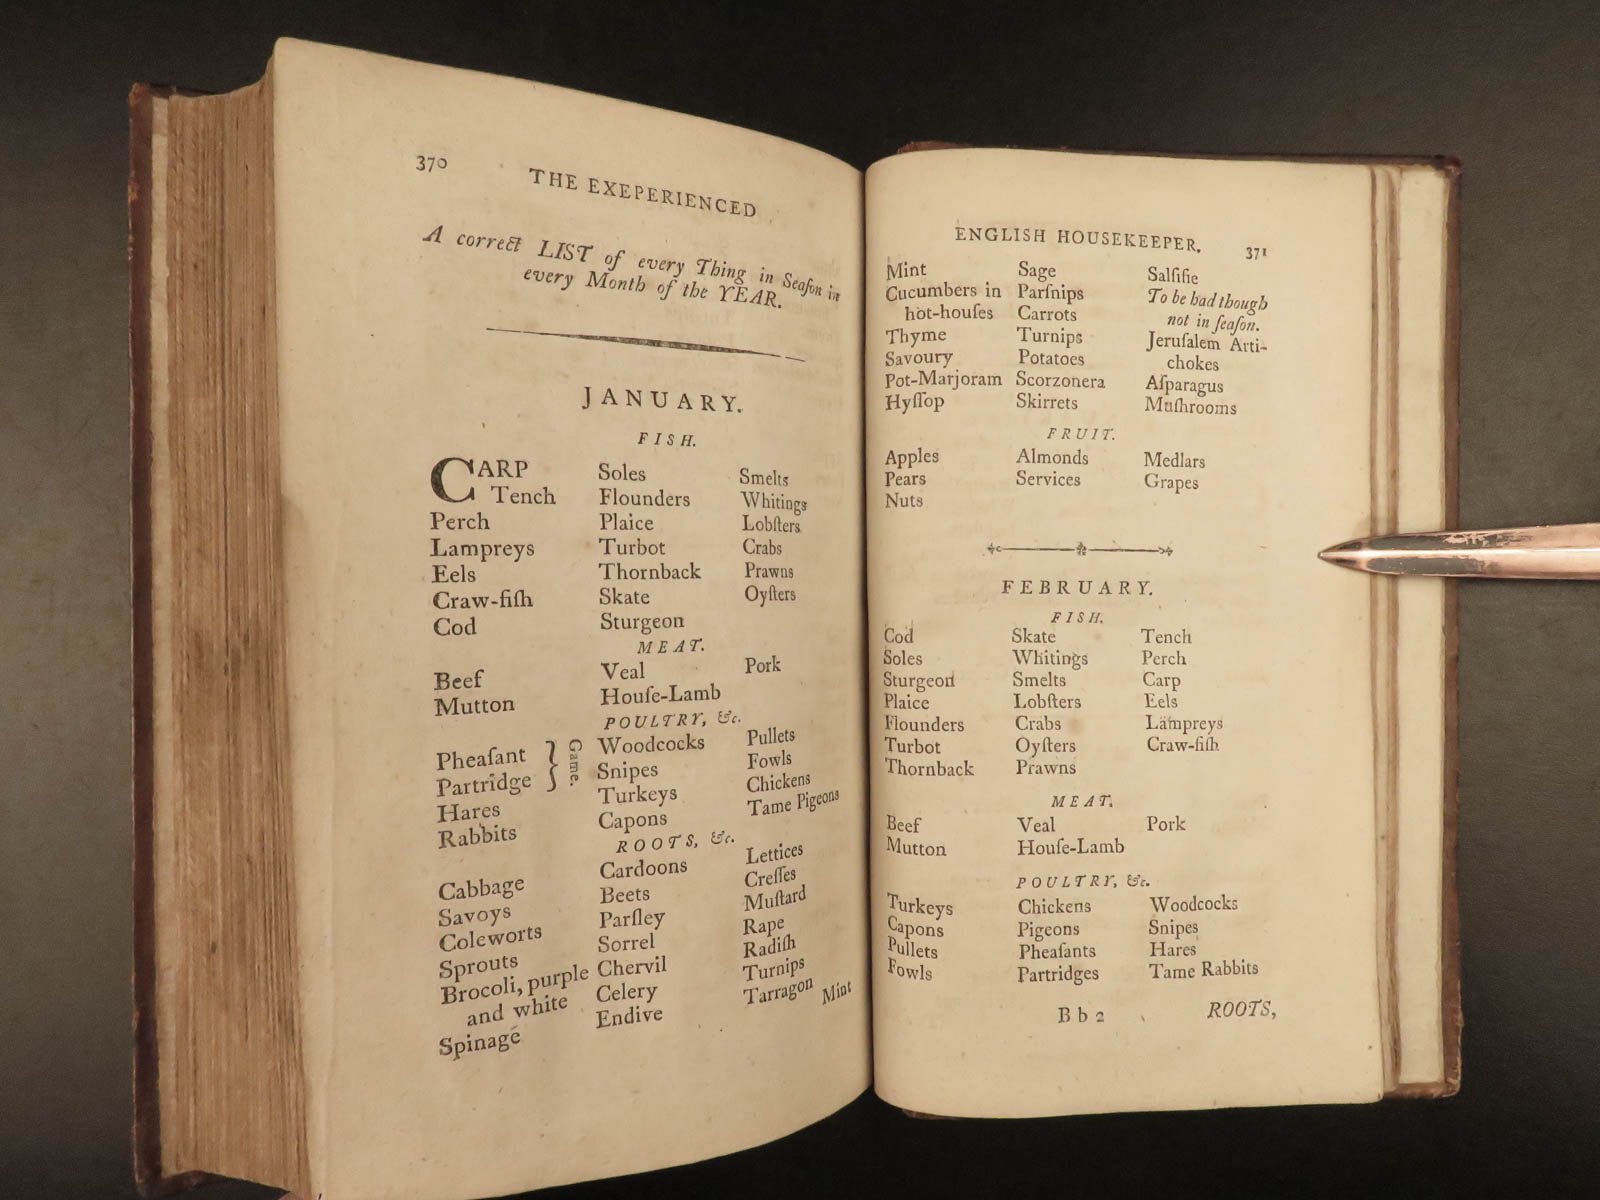 370
THE EXEPERIENCED
A correct LIST of every Thing in Seaſon in
every Month of the YEAR.
JANUARY.
FISH.
CARP Soles Smelts
Tench Flounders Whitings
Perch Plaice Lobſters
Lampreys Turbot Crabs
Eels Thornback Prawns
Craw-fiſh Skate Oyſters
Cod Sturgeon
MEAT.
Beef Veal Pork
Mutton Houſe-Lamb
POULTRY, &c.
Pheaſant } Game. Woodcocks Pullets
Partridge Snipes Fowls
Hares Turkeys Chickens
Rabbits Capons Tame Pigeons
ROOTS, &c.
Cabbage Cardoons Lettices
Savoys Beets Creſſes
Coleworts Parſley Muſtard
Sprouts Sorrel Rape
Brocoli, purple Chervil Radiſh
and white Celery Turnips
Spinage Endive Tarragon
Mint
ENGLISH HOUSEKEEPER. 371
Mint Sage Salſifie
Cucumbers in Parſnips To be had though
hot-houſes Carrots not in ſeaſon.
Thyme Turnips Jeruſalem Arti-
Savoury Potatoes chokes
Pot-Marjoram Scorzonera Aſparagus
Hyſſop Skirrets Muſhrooms
FRUIT.
Apples Almonds Medlars
Pears Services Grapes
Nuts
FEBRUARY.
FISH.
Cod Skate Tench
Soles Whitings Perch
Sturgeon Smelts Carp
Plaice Lobſters Eels
Flounders Crabs Lampreys
Turbot Oyſters Craw-fiſh
Thornback Prawns
MEAT.
Beef Veal Pork
Mutton Houſe-Lamb
POULTRY, &c.
Turkeys Chickens Woodcocks
Capons Pigeons Snipes
Pullets Pheaſants Hares
Fowls Partridges Tame Rabbits
B b 2 ROOTS,